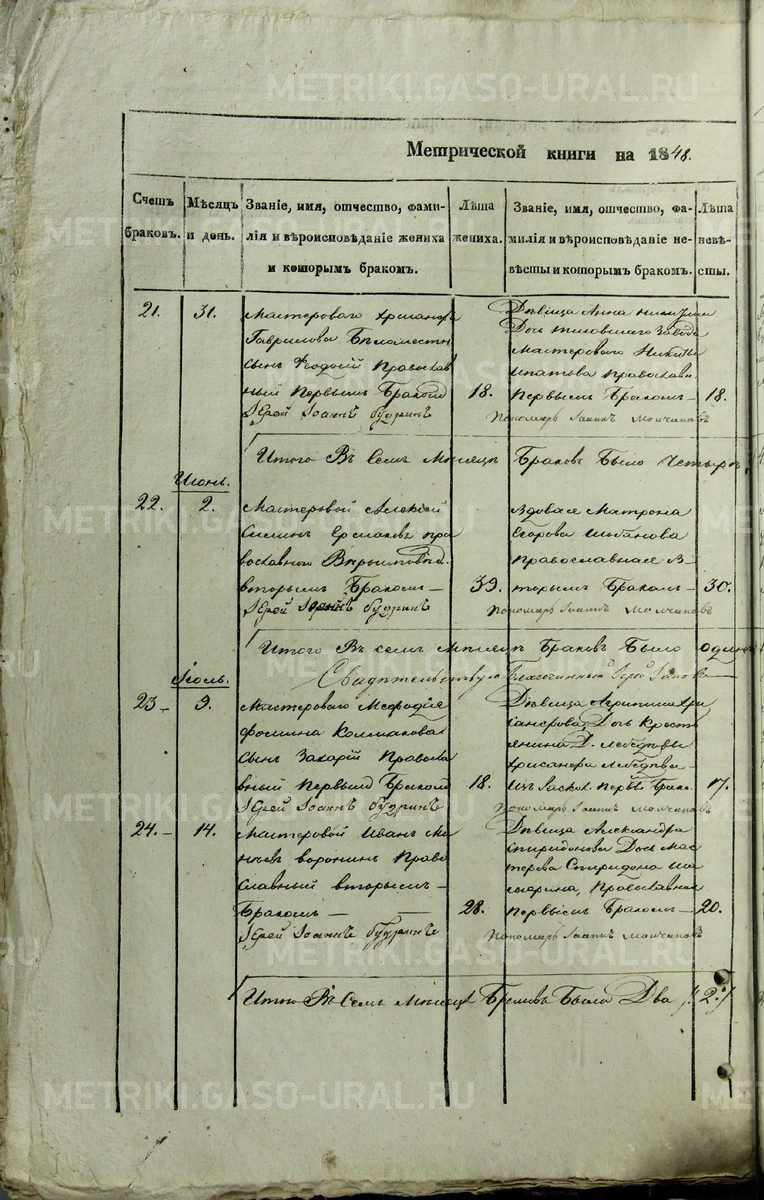 METRIKI.GASO-URAL.RU
Метрической книги на 1848.
Счетъ браковъ.
Мѣсяцъ и день.
Званіе, имя, отчество, фами-
лія и вѣроисповѣданіе жениха
и которымъ бракомъ.
Лѣта жениха.
Званіе, имя, отчество, фа-
милія и вѣроисповѣданіе не-
вѣсты и которымъ бракомъ.
Лѣта невѣ-
сты.
21. 31.
Мастероваго
Гаврилова Бѣломѣстн
сынъ Ѳеодосій Православ
ный Первымъ Бракомъ 18.
Іерей Іоаннъ Будринъ
Дѣвица Анна
Дочь завода
Мастероваго Никиты
Ипатова Православн
Первымъ Бракомъ 18.
Пономарь Іоаннъ
Итого Въ Семъ Мѣсяцѣ Браковъ Было Четыре
Июнь.
22. 2.
Мастеровой Алексій
Силинъ Ермаковъ пра
вославнаго
вторымъ Бракомъ 39.
Іерей Будринъ
Вдова Матрона
Егорова
православная в
торымъ Бракомъ 30.
Пономарь Іоаннъ
Итого Въ семъ Мѣсяцѣ Браковъ Было одинъ
Свидѣтельствую Благочинный Іерей
Іюль.
23 9.
Мастероваго Меѳодія
Фомина Колмакова
сынъ Захарій Правосла
вный Первымъ Бракомъ 18.
Іерей Іоаннъ Будринъ
Дѣвица Агрипина Хри
санфова Дочь Кресть
янина Д. Лебедевы
Хрисанфа Лебедева
Изъ Раскол. Первы Брако. 17.
Пономарь Іоаннъ
24. 14.
Мастеровой Иванъ Ма
воронинъ Право
славный вторымъ
Бракомъ 28.
Іерей Іоаннъ Будринъ
Дѣвица Александра
Спиридонова Дочь Мас
терова Спиридона
Православная
Первымъ Бракомъ 20.
Пономарь Іоаннъ
Итого Въ Семъ Мѣсяцѣ Браковъ Было Два /:2:/